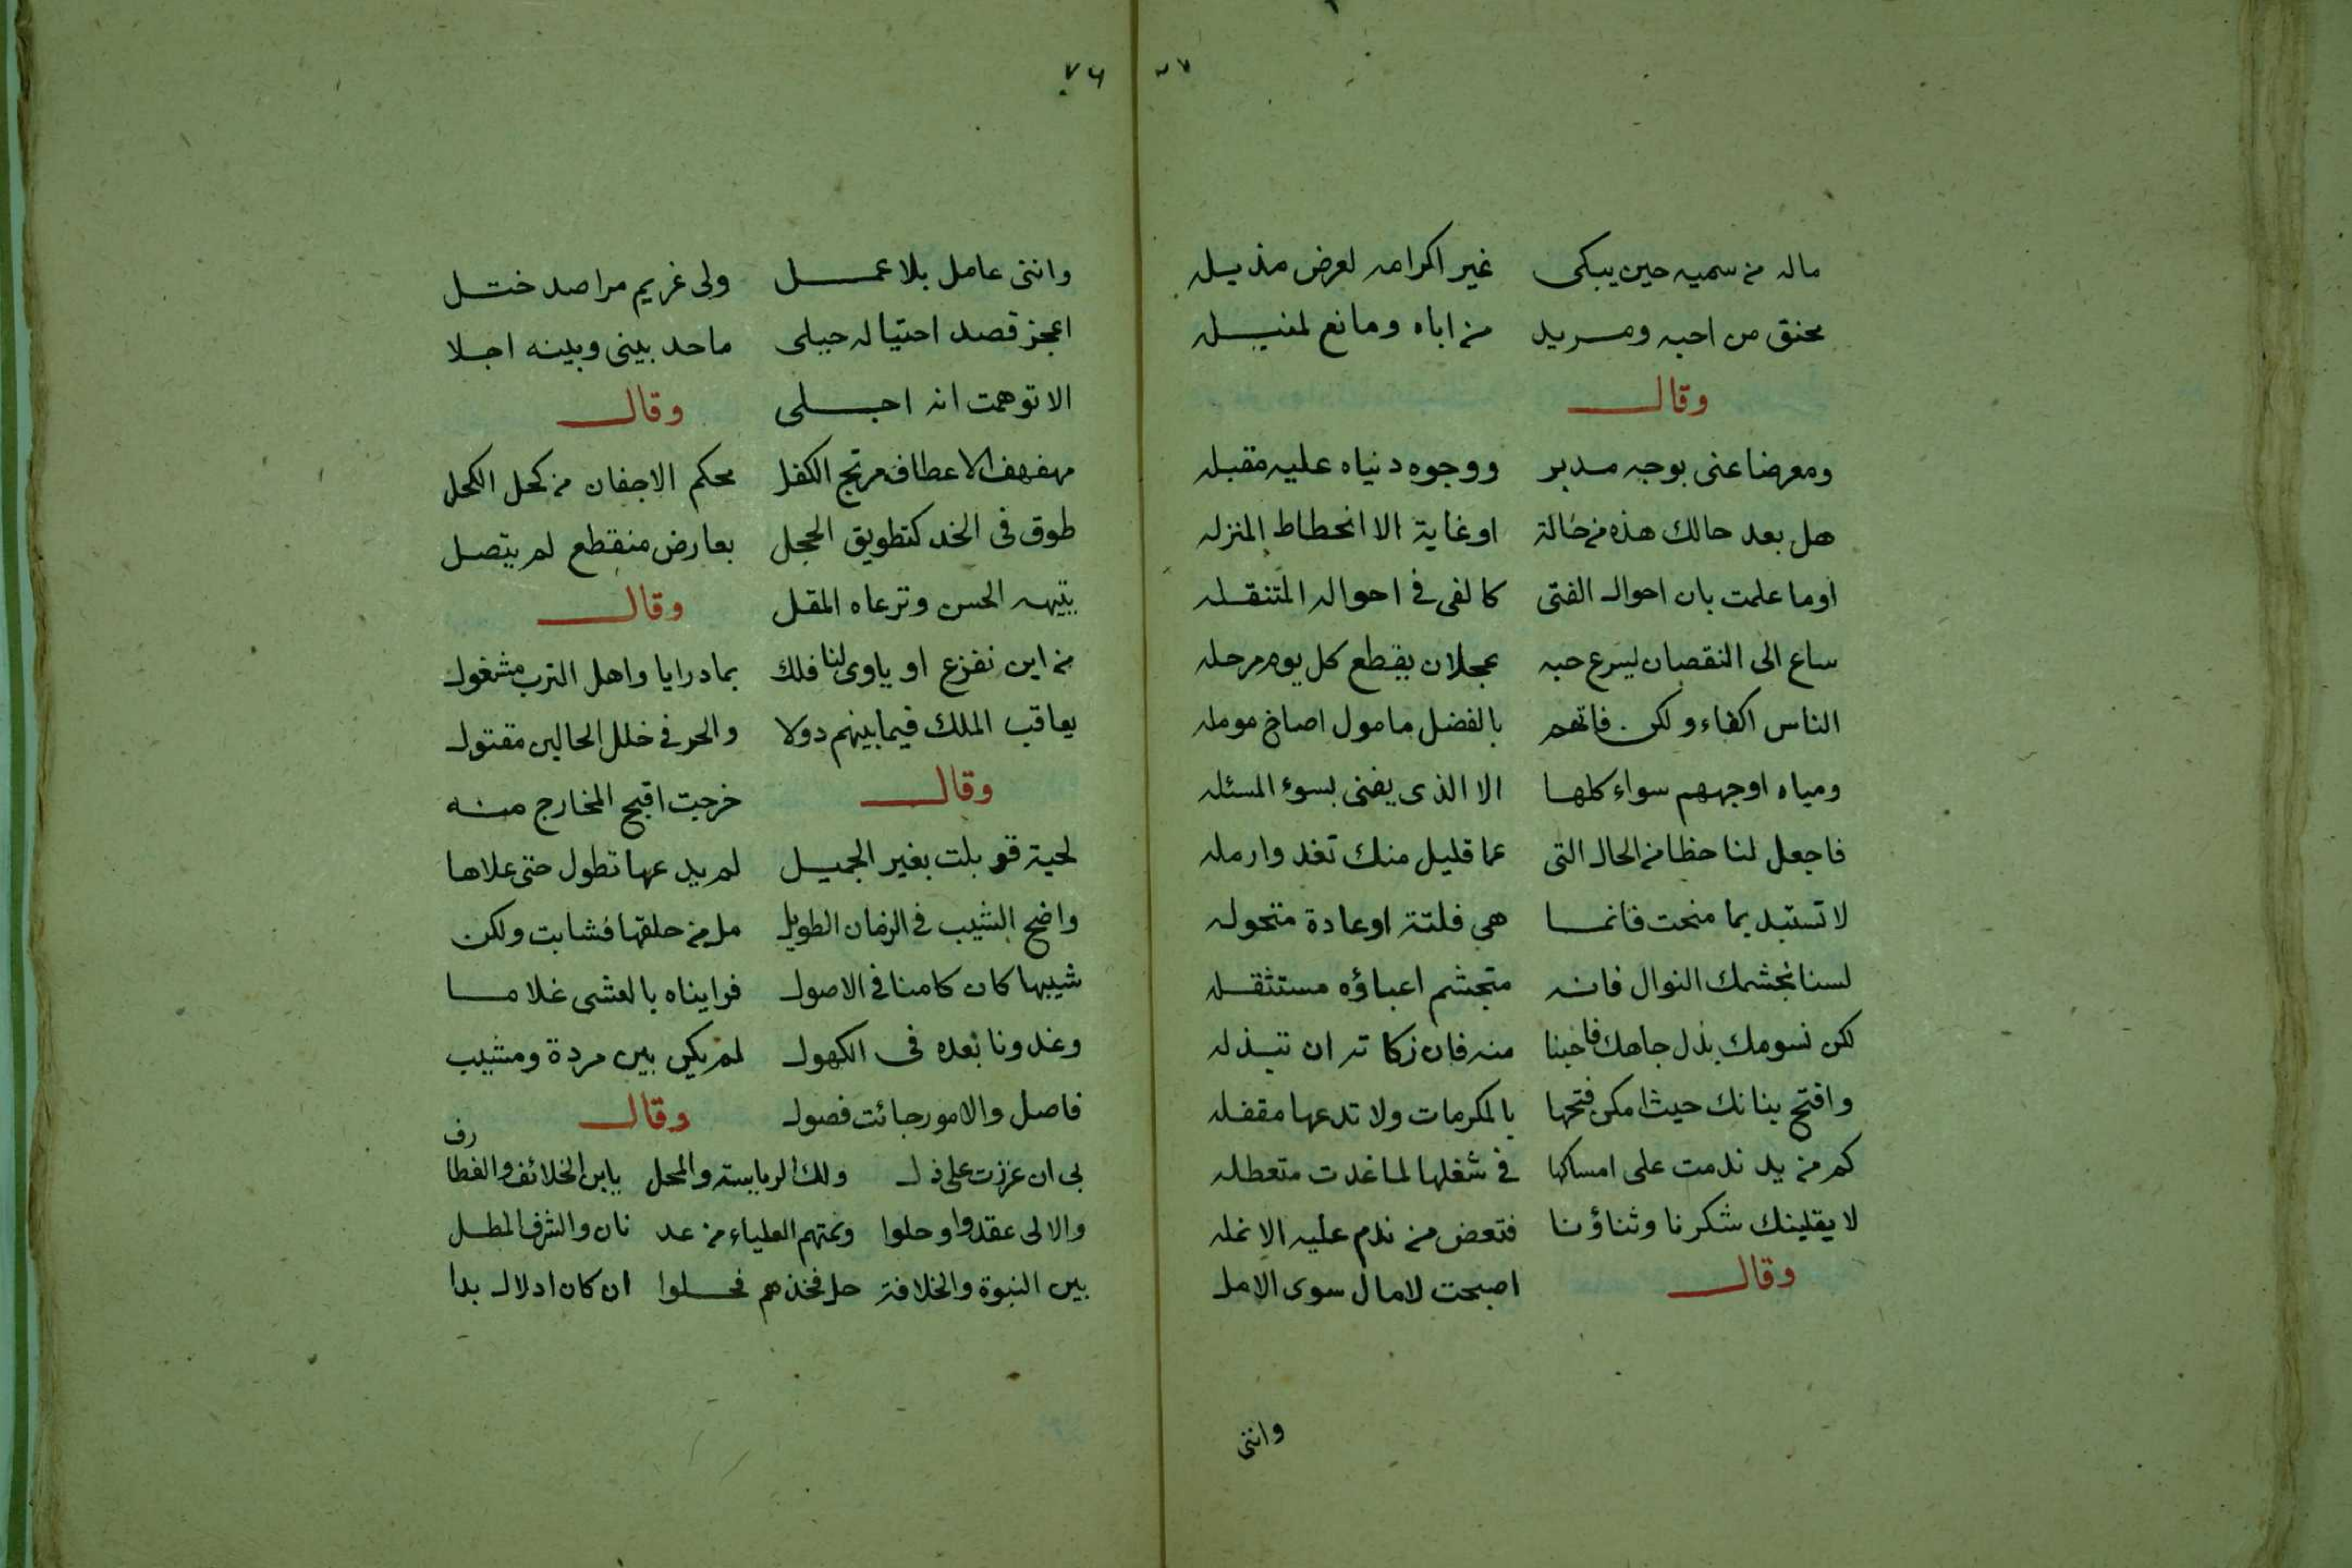 ماله من سميه حين يبكى غير اكرامه لعرض مذيله
محنق من احبه ومريد من اباه ومانع لمنيله
وقال
ومعرضا عنى بوجه مدبر ووجوه دنياه عليه مقبله
هل بعد حالك هذه من حالة او غاية الا انحطاط المنزله
اوما علمت بان احوال الفتى كالفى فى احواله المتنقله
ساع الى النقصان ليسرع حبه عجلان يقطع كل يوم مرحله
الناس اكفاء ولكن فاتهم بالفضل مامول اصاخ مومله
ومياه اوجههم سواء كلها الا الذى يفنى بسوء المسئله
فاجعل لنا حظا من الحال التى عما قليل منك تغدوا رمله
لا تستبد بما منحت فانما هى فلتة او عادة متحوله
لسنا نجشمك النوال فانه متجشم اعباؤه مستثقله
لكن نسومك بذل جاهك فاحبنا منه فان زكاته ان تبذله
وافتح بنانك حيث امكن فتحها بالمكرمات ولا تدعها مقفله
كم من يد ندمت على امساكها فى شغلها لما غدت متعطله
لا يقلينك شكرنا وثناؤنا فتعض من ندم عليه الانمله
وقال اصبحت لا مال سوى الامل
وانتى
٧٦
وانتى عامل بلا عمل ولى غريم مراصد ختل
اعجز قصد احتياله حيلى ما حد بينى وبينه اجلا
الا توهمت انه اجلى وقال
مهفهف الاعطاف مرتج الكفل محكم الاجفان من كحل الكحل
طوق فى الخد كتطويق الحجل بعارض منقطع لم يتصل
يتيهه الحسن وترعاه المقل وقال
من اين نفزع او ياوى لنا فلك بما درايا واهل الترب مشغول
يعاقب الملك فيما بينهم دولا والحر فى خلل الحالين مقتول
وقال خرجت اقبح المخارج منه
لحية قوبلت بغير الجميل لم يدعها تطول حتى علاها
واضح الشيب فى الزمان الطويل مل من حلقها فشابت ولكن
شيبها كان كامنا فى الاصول فرايناه بالعشى غلاما
وغدونا بعده فى الكهول لم يكن بين مردة ومشيب
فاصل والامور جائت فصول وقال
بى ان عززت على ذل ولك الرياسة والمحل يابن الخلائف والغطا رف
والالى عقدوا وحلوا ونمتهم العلياء من عد نان والشرف المطل
بين النبوة والخلافة حل فخذهم فحلوا ان كان ادلال بدا